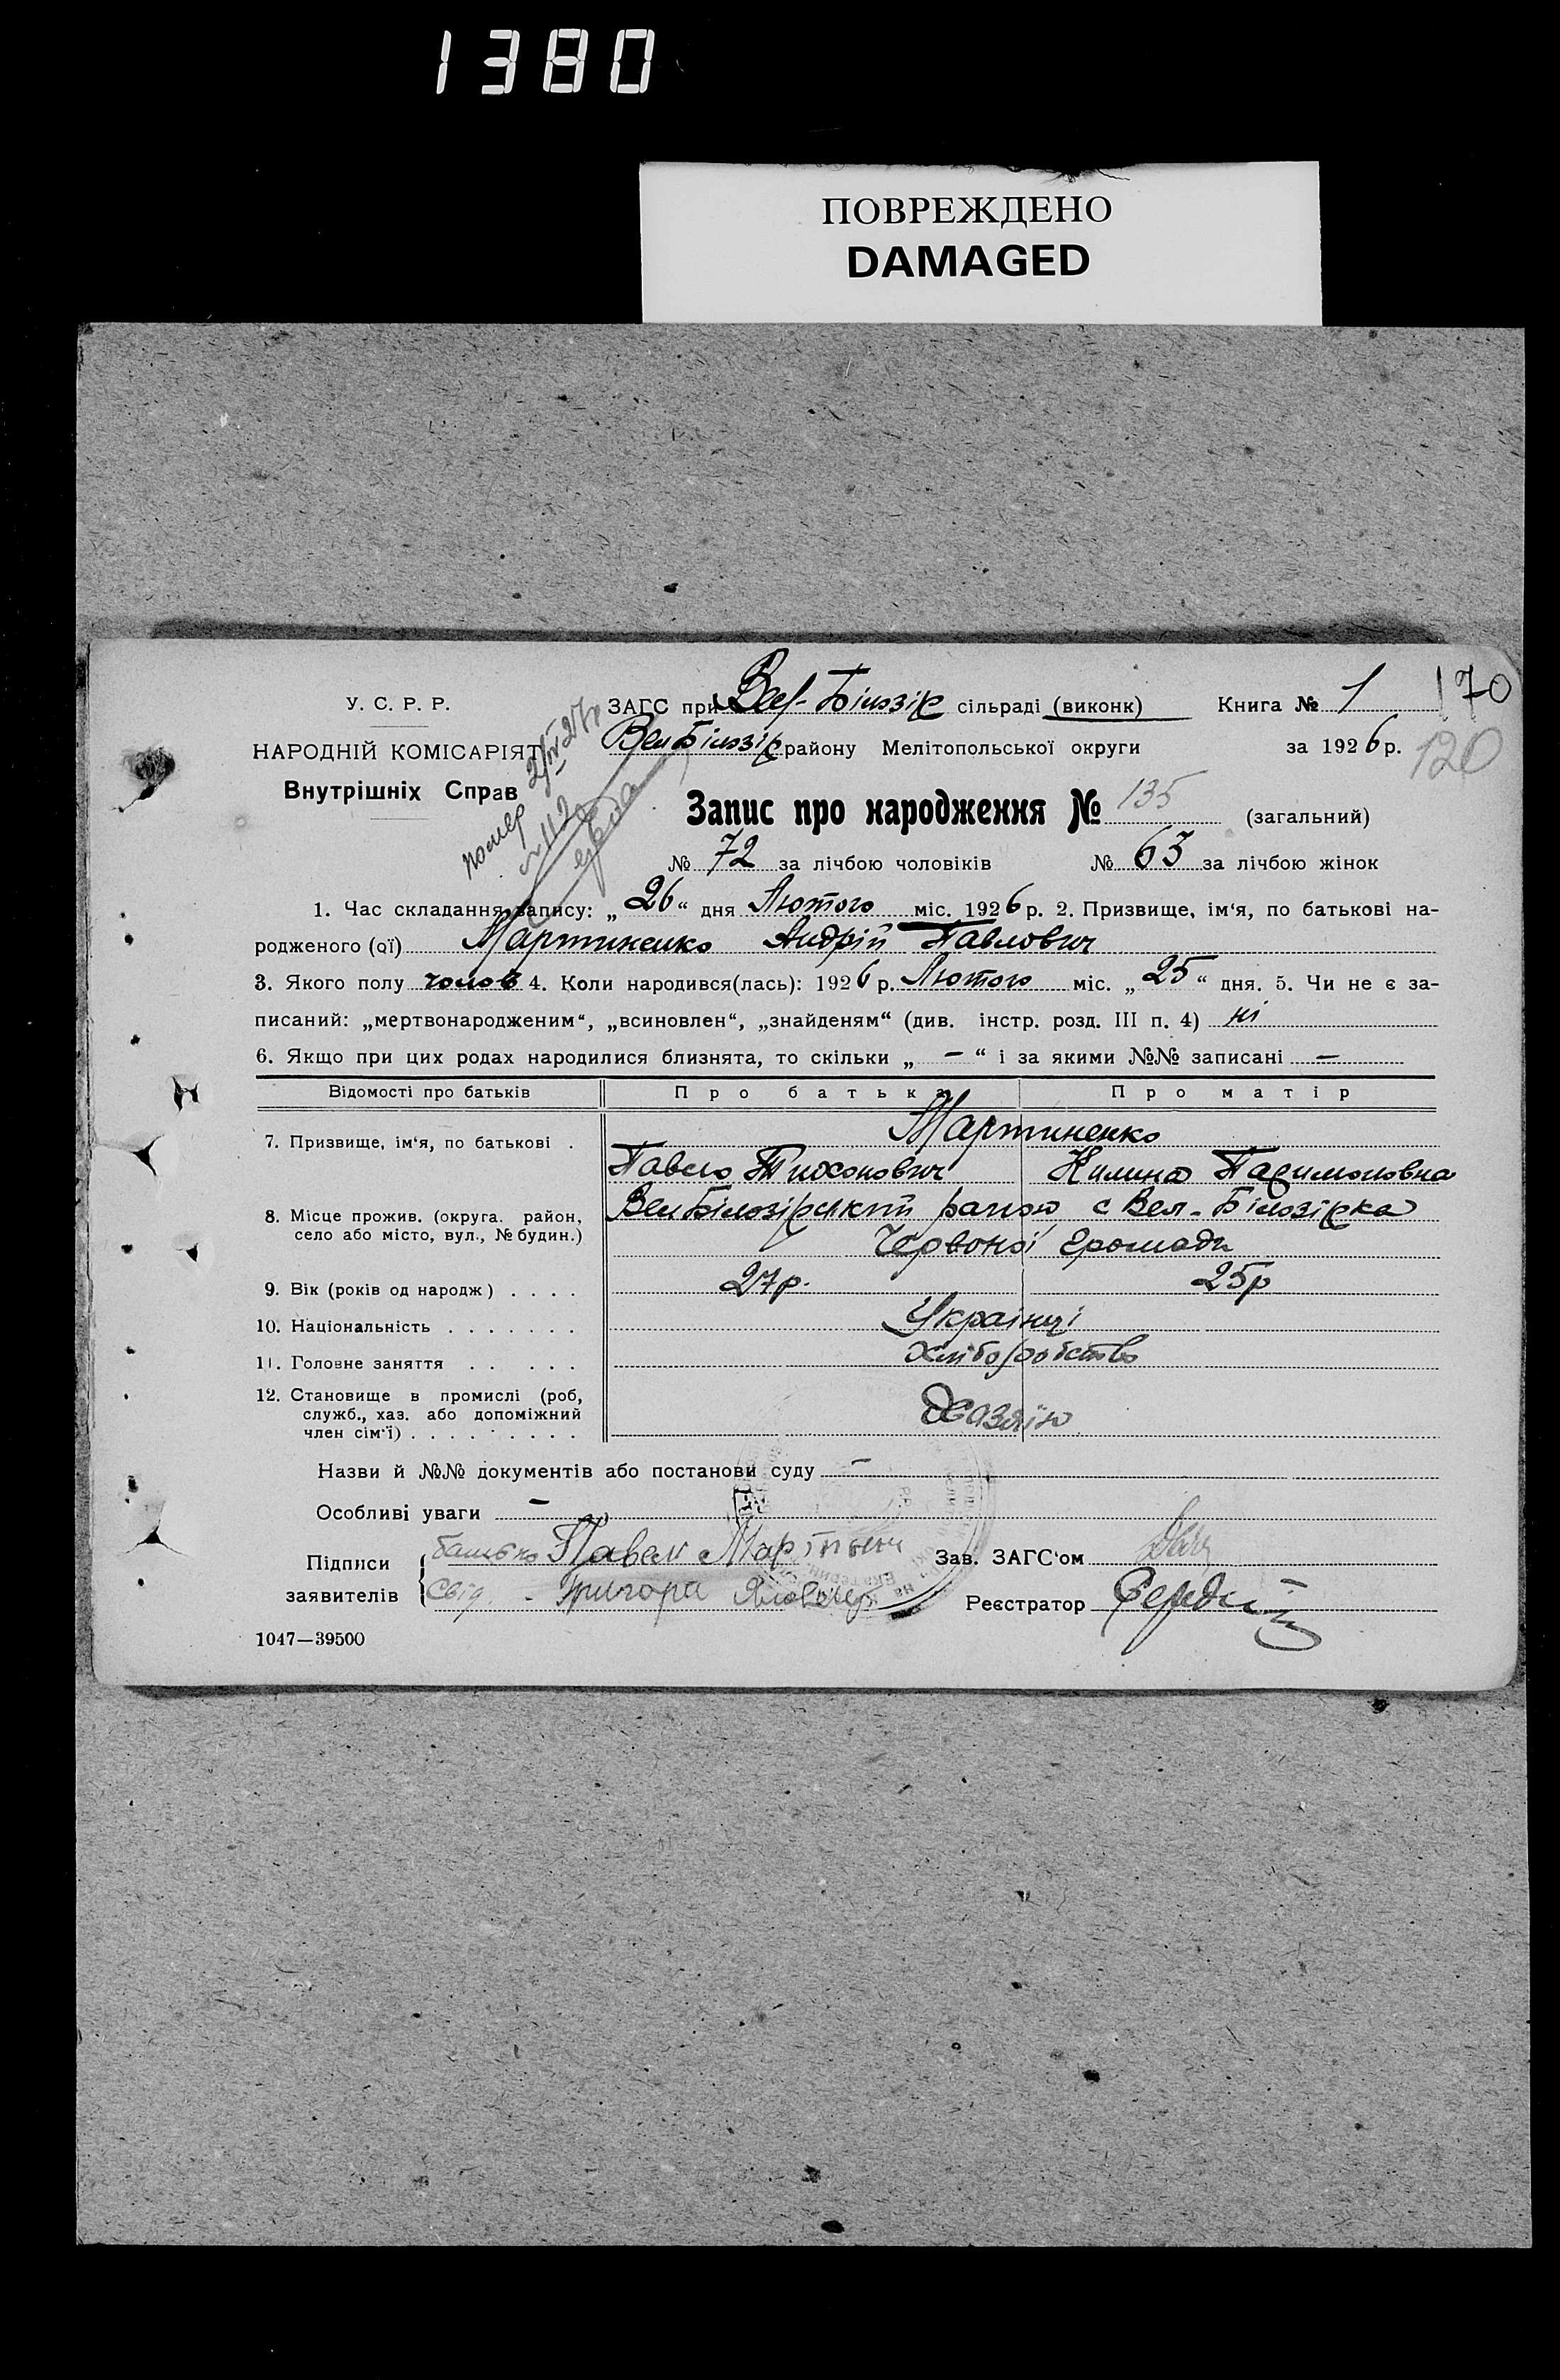 1380
ПОВРЕЖДЕНО
DAMAGED
У. С. Р. Р.
НАРОДНІЙ КОМІСАРІЯТ
Внутрішніх Справ
помер 2/IV 27р
№112
ЗАГС при Вел-Білозір сільраді (виконк) Книга № 1
170
ВелБілозір району Мелітопольської округи за 1926 р.
120
Запис про народження № 135 (загальний)
№ 72 за лічбою чоловіків № 63 за лічбою жінок
1. Час складання запису: „26“ дня Лютого міс. 1926 р. 2. Призвище, ім'я, по батькові на-
родженого (ої) Мартиненко Андрій Павлович
3. Якого полу чолов 4. Коли народився(лась): 1926 р. Лютого міс. „25“ дня. 5. Чи не є за-
писаний: „мертвонародженим“, „всиновлен“, „знайденям“ (див. інстр. розд. III п. 4) ні
6. Якщо при цих родах народилися близнята, то скільки „ — “ і за якими №№ записані —
Відомості про батьків Про батька Про матір
7. Призвище, ім'я, по батькові . Мартиненко
Павло Тихонович Килина Паримоновна
8. Місце прожив. (округа. район,
село або місто, вул., № будин.)
ВелБілозірський район с Вел-Білозірка
Червоної Громади
9. Вік (років од народж) . . . . 27р. 25р
10. Національність . . . . . . . Українці
11. Головне заняття . . . . . . Хліборобство
12. Становище в промислі (роб,
служб., хаз. або допоміжний
член сім'ї) . . . . . . . . . Хазяїн
Назви й №№ документів або постанови суду —
Особливі уваги —
Підписи
заявителів
батько Павел Мартинен
Свід. - Григора
Зав. ЗАГС'ом
Реєстратор
1047—39500